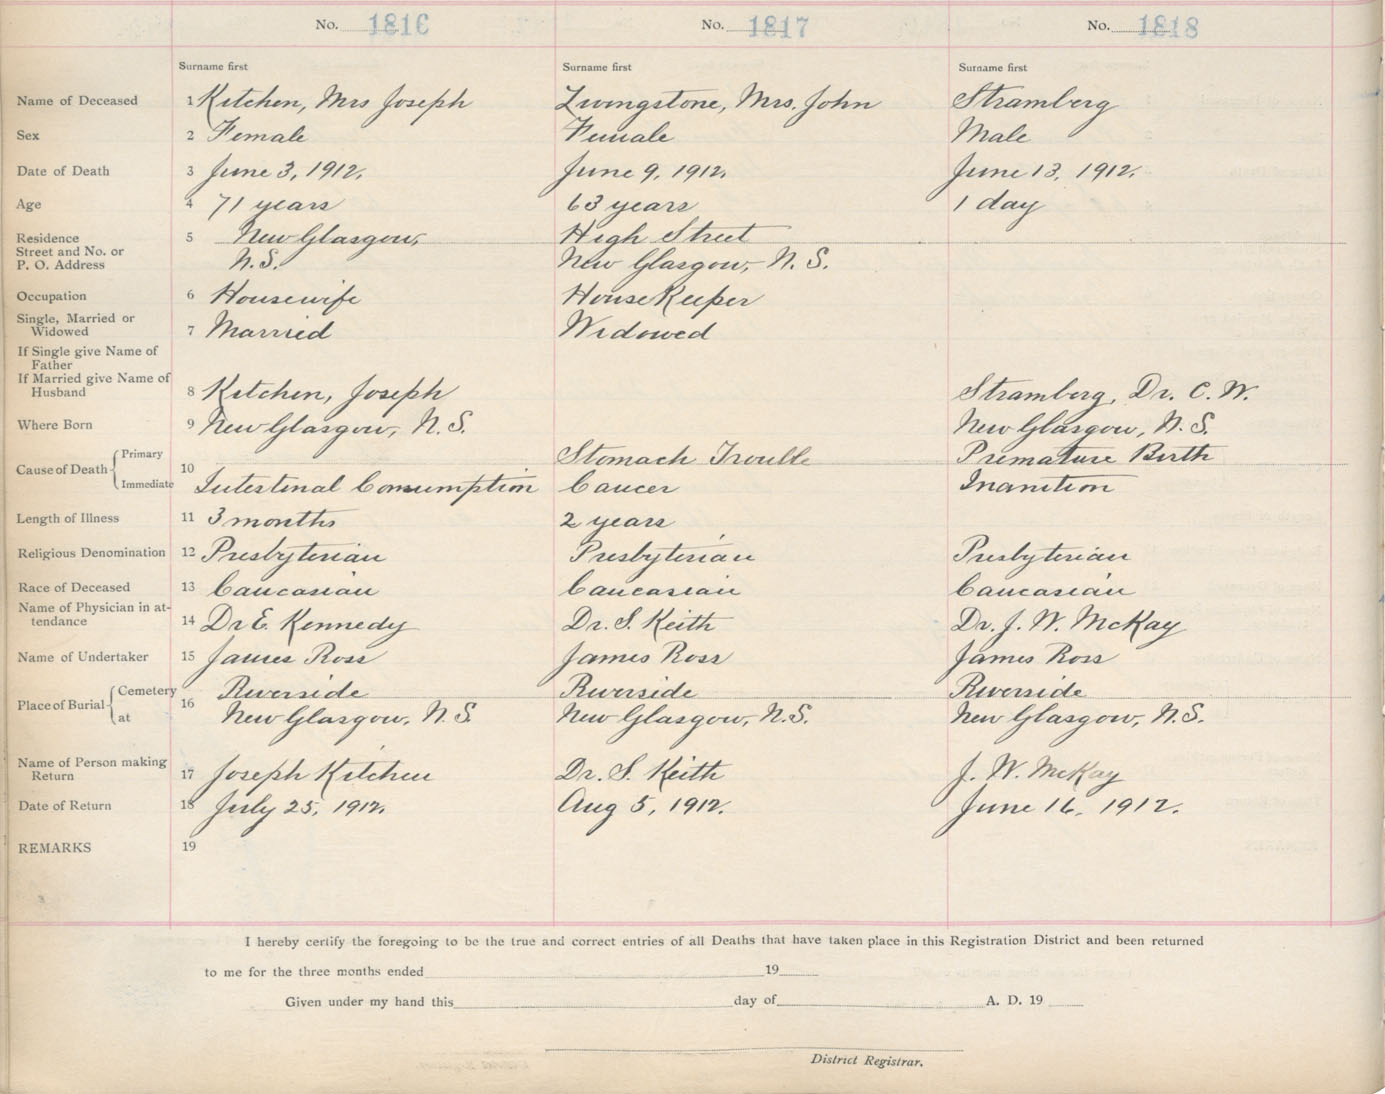 No. 1816 No. 1817 No. 1818
Surname first Surname first Surname first
Name of Deceased 1 Kitchen, Mrs Joseph Livingstone, Mrs. John Stramberg
Sex 2 Female Female Male
Date of Death 3 June 3, 1912. June 9, 1912. June 13, 1912.
Age 4 71 years 63 years 1 day
Residence 5 New Glasgow, High Street
Street and No. or
P. O. Address N.S. New Glasgow, N. S.
Occupation 6 Housewife HouseKeeper
Single, Married or
Widowed 7 Married Widowed
If Single give Name of
Father
If Married give Name of
Husband 8 Kitchen, Joseph Stramberg, Dr. C. W.
Where Born 9 New Glasgow, N.S. New Glasgow, N. S.
Cause of Death Primary Stomach Trouble Premature Birth
10
Immediate Intestinal Consumption Cancer Inanition
Length of Illness 11 3 months 2 years
Religious Denomination 12 Presbyterian Presbyterian Presbyterian
Race of Deceased 13 Caucasian Caucasian Caucasian
Name of Physician in at-
tendance 14 Dr E. Kennedy Dr. S. Keith Dr. J. W. McKay
Name of Undertaker 15 James Ross James Ross James Ross
Place of Burial Cemetery Riverside Riverside Riverside
16
at New Glasgow, N. S. New Glasgow, N.S. New Glasgow, N.S.
Name of Person making
Return 17 Joseph Kitchen Dr. S. Keith J. W. McKay
Date of Return 18 July 25, 1912. Aug 5, 1912. June 16, 1912.
REMARKS 19
I hereby certify the foregoing to be the true and correct entries of all Deaths that have taken place in this Registration District and been returned
to me for the three months ended 19
Given under my hand this day of A. D. 19
District Registrar.